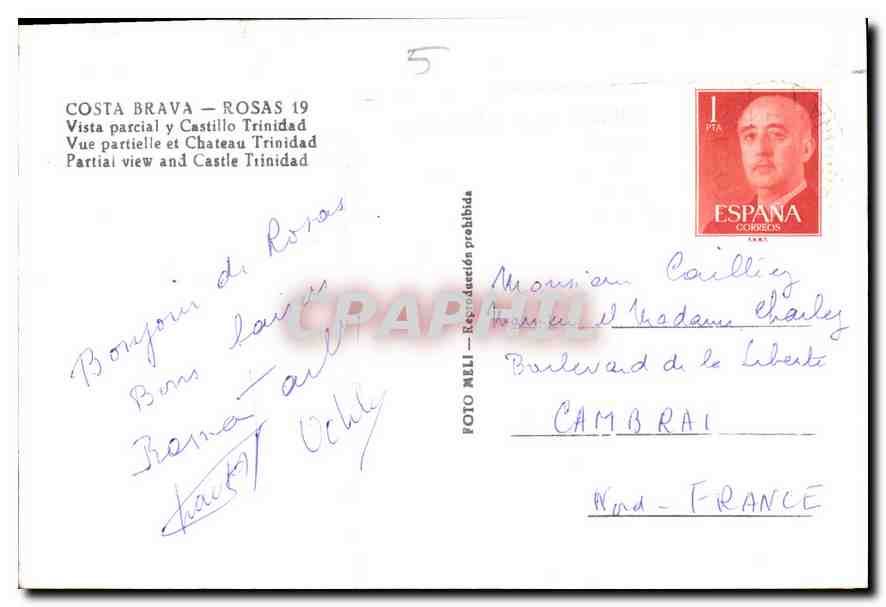 5
COSTA BRAVA — ROSAS 19
Vista parcial y Castillo Trinidad
Vue partielle et Chateau Trinidad
Partial view and Castle Trinidad
Bonjour de Rosas
Bons baisers
FOTO MELI — Reproducción prohibida
CPAPHIL
1
PTA
ESPAÑA
CORREOS
F.N.M.T.
Monsieur Cailliez
Monsieur et Madame Charley
Boulevard de la Liberté
CAMBRAI
Nord - FRANCE